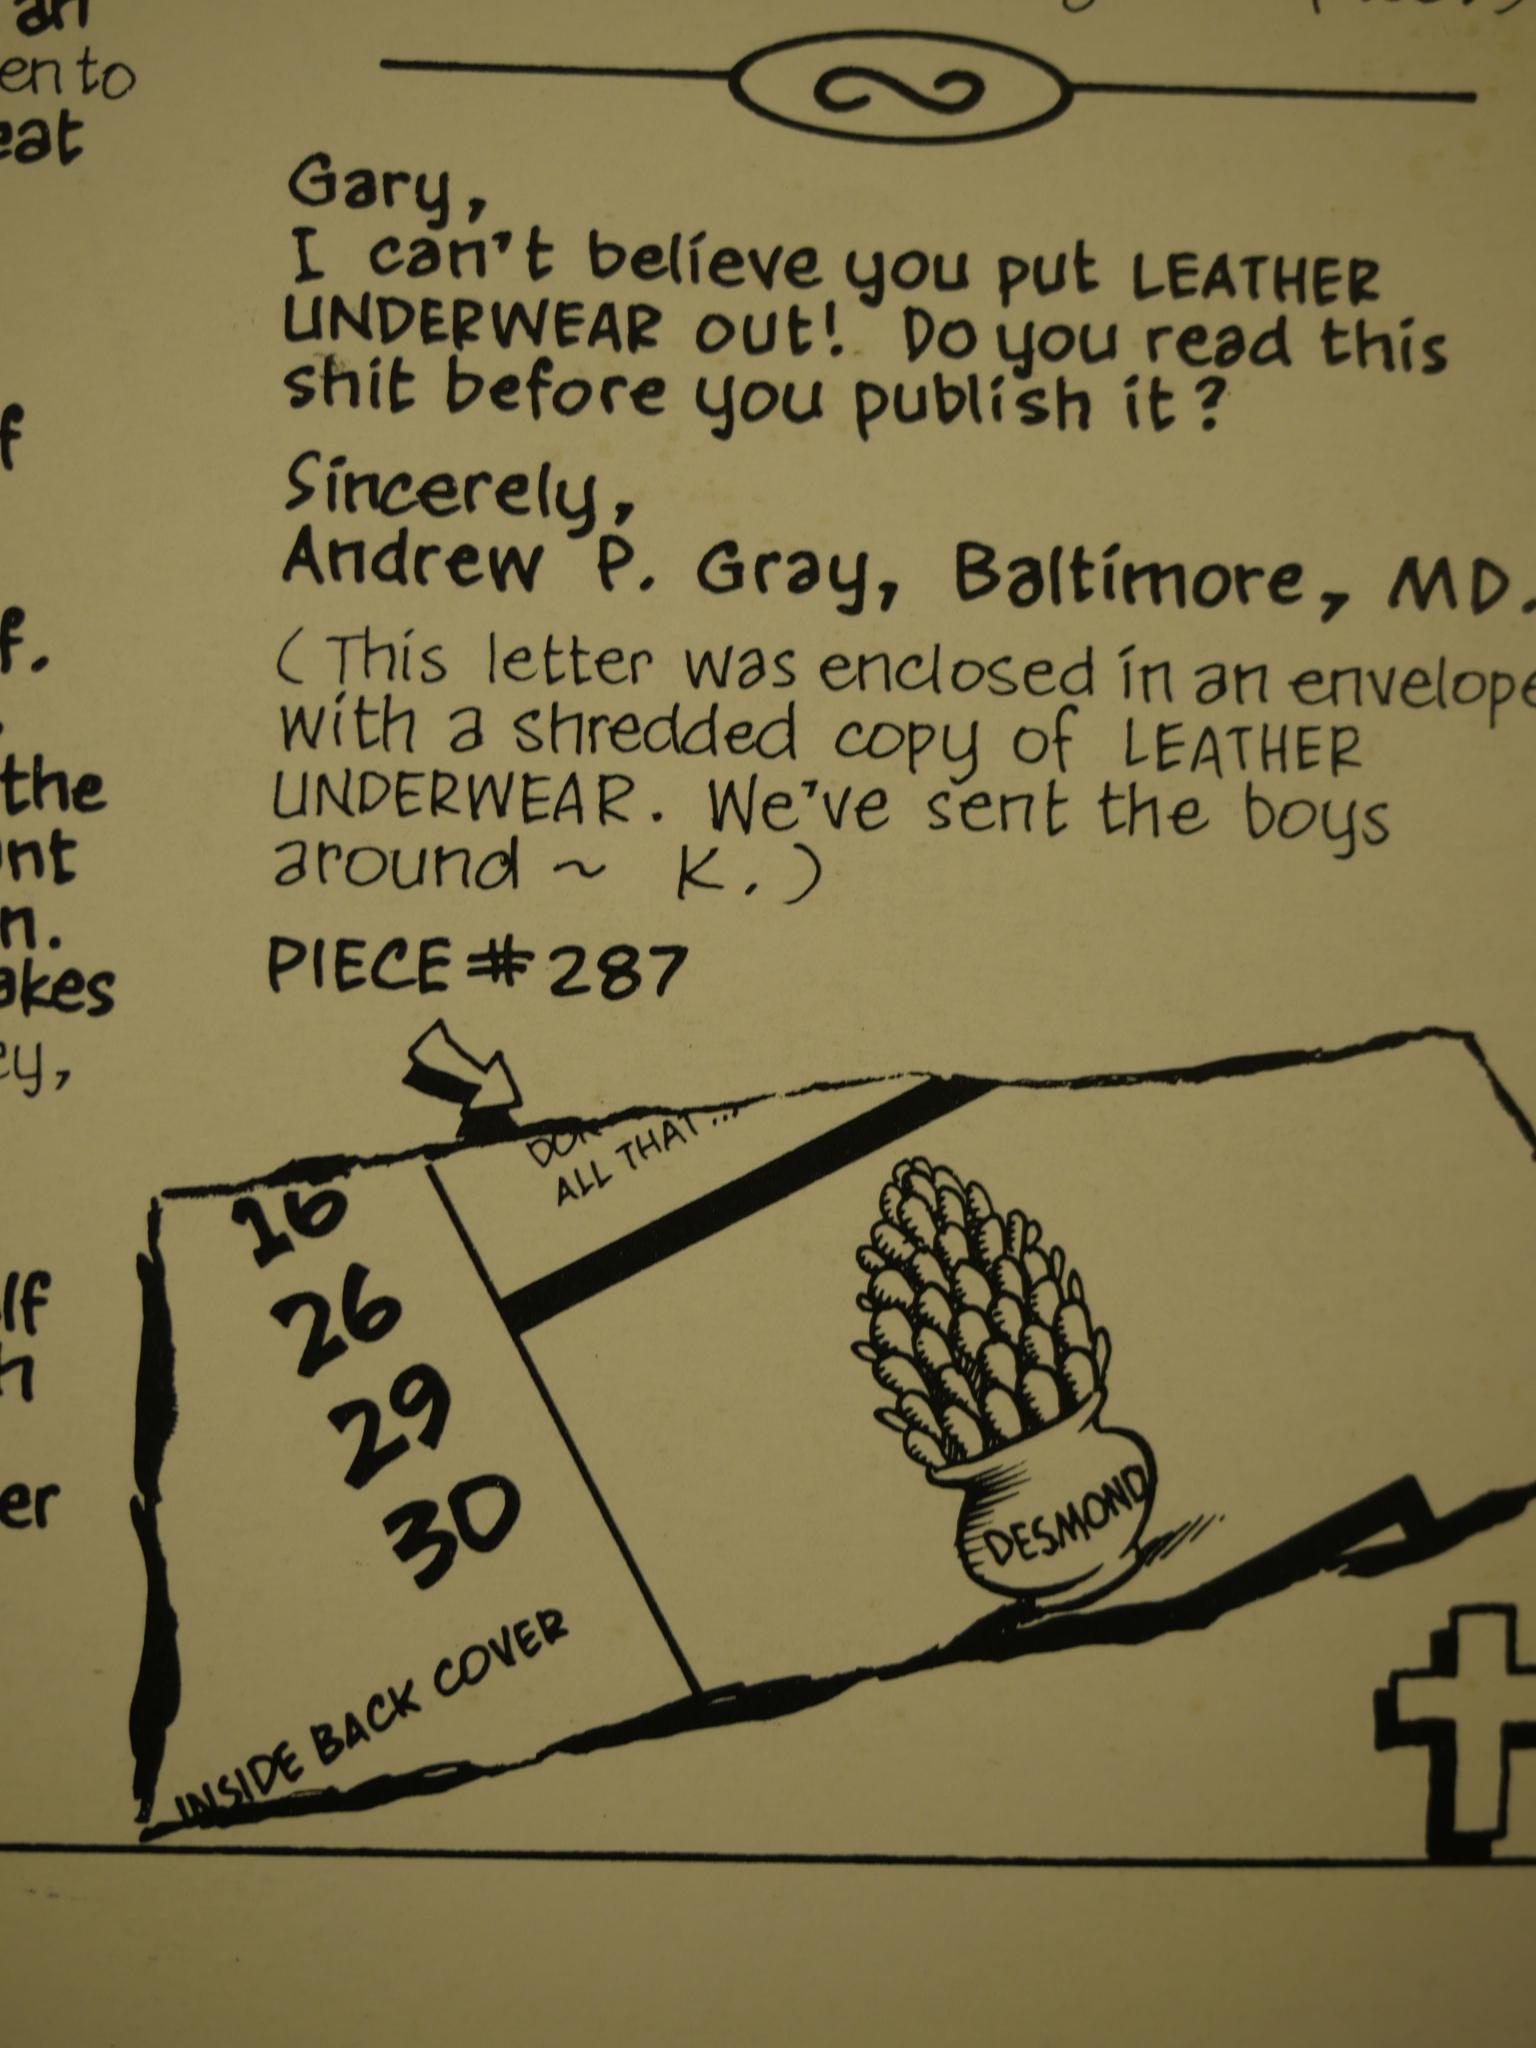 an
en to
eat
f
f.
the
nt
n.
akes
ey,
lf
h
er
Gary,
I can't believe you put LEATHER
UNDERWEAR out! Do you read this
shit before you publish it?
Sincerely,
Andrew P. Gray, Baltimore, MD.
(This letter was enclosed in an envelope
with a shredded copy of LEATHER
UNDERWEAR. We've sent the boys
around ~ K.)
PIECE #287
ALL THAT...
16
26
29
30
INSIDE BACK COVER
DESMOND